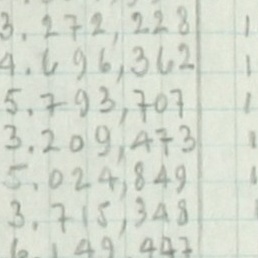 3.272,228 1
4.696,362 1
5.793,707 1
3.209,473 1
5.024,849 1
3.715,348 1
6.149,447